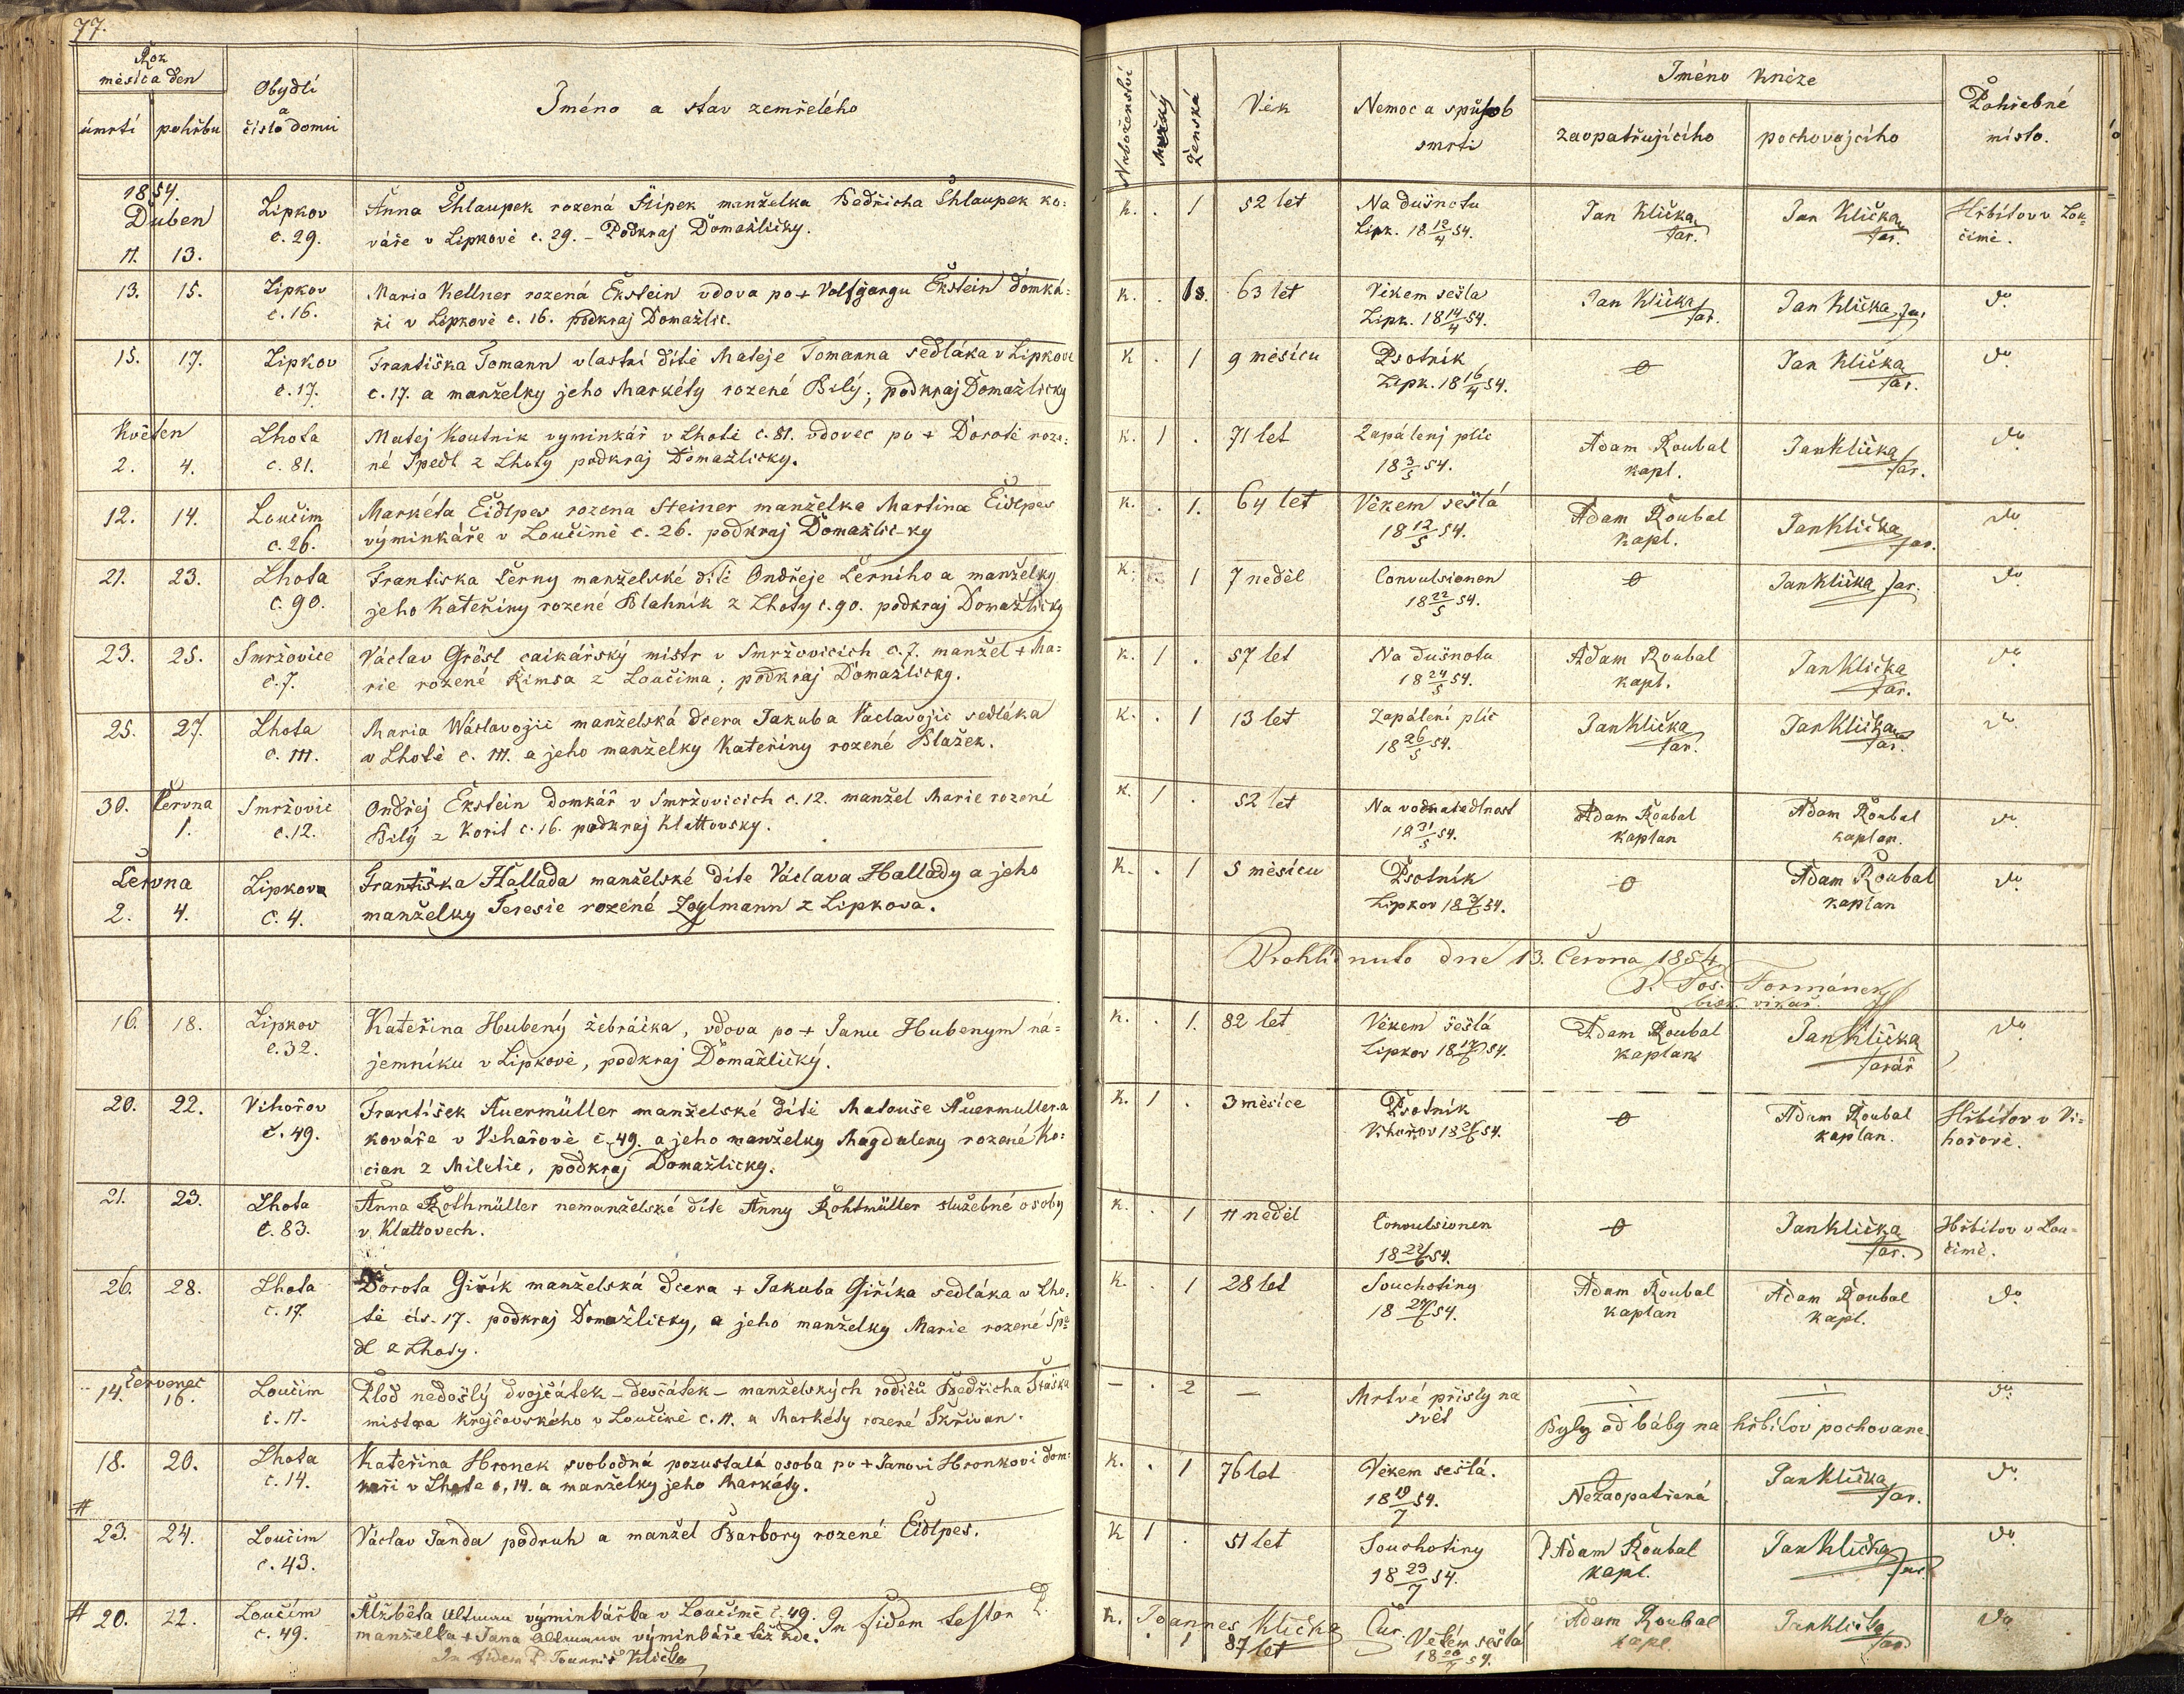 77.
Rok
měsíca den
úmrtí pohřbu
Obydlí
a
číslo domu
Jméno a stav zemřelého
Náboženství
Mužský
Ženská
Věk
Nemoc a spůsob
smrti
Jméno kněze
zaopatřujícího
pochovajcího
Pohřebné
místo.
1854.
Duben
11. 13.
Lipkov
c. 29.
Anna Chlaupek rozená Šípek manželka Bedřicha Chlaupek ko:
váře v Lipkově c. 29. – Podkraj Domažličky.
K. . 1 52 let
Na dušnotu
Lipk. 18 12/4 54.
Jan Klička
far.
Jan Klička
far.
Hřbitov v Lou:
čimě.
13. 15.
Lipkov
c. 16.
Maria Kellner rozená Ekstein vdova po + Volfgangu Ekstein domká:
ři v Lipkově c. 16. podkraj Domažlic.
K. . 63 let
Věkem sešla
Lipk. 18 14/4 54.
Jan Klička
far.
Jan Klička far.
do
15. 17.
Lipkov
c. 17.
Františka Tomann vlastní dítě Mateje Tomanna sedláka v Lipkově
c. 17. a manželky jeho Markéty rozené Bílý; podkraj Domažlicky
K . 1 9 měsícu
Psotník
Lipk. 18 16/4 54.
Jan Klička
far.
do
Květen
2. 4.
Lhota
c. 81.
Matěj Koutnik vyminkář v Lhotě c. 81. vdovec po + Dorotě roze:
né Špedl z Lhoty podkraj Domažlicky.
K. 1 . 71 let
Zapálenj plic
18 3/5 54.
Adam Roubal
kapl.
Jan Klička
far.
do
12. 14.
Loučim
c. 26.
Markéta Eidlpes rozena Steiner manželka Martina Eidlpes
výminkáře v Loučimě c. 26. podkraj Domažlic-ky
K. . 1. 64 let
Věkem sešlá
18 12/5 54.
Adam Roubal
kapl.
Jan Klička
far.
do
21. 23.
Lhota
c. 90.
Frantiska Černy manželské dítě Ondřeje Černiho a manželky
jeho Kateřiny rozené Blahník z Lhoty c. 90. podkraj Domažlicky
K. 1 7 neděl
Convulsionen
18 22/5 54.
Jan Klička far.
do
23. 25.
Smržovice
c. 7.
Václav Grösl caikářský mistr v Smržovicích c. 7. manžel + Ma:
rie rozené Rimsa z Loučima; podkraj Domažlicky.
K. 1 . 57 let
Na dušnotu
18 24/5 54.
Adam Roubal
kapl.
Jan Klička
far.
do
25. 27.
Lhota
c. 111.
Maria Wáslavojic manželská dcera Jakuba Vaclavojic sedláka
v Lhotě c. 111. a jeho manželky Kateřiny rozené Blažek.
K. . 1 13 let
Zapálení plic
18 26/5 54.
Jan Klička
far.
Jan Klička
far.
do
30. Června
1.
Smržovic
c. 12.
Ondřej Ekstein domkář v Smržovicích c. 12. manžel Marie rozené
Bílý z Korit c. 16. podkraj Klattovsky.
K. 1 . 52 let
Na vodnatedlnost
18 31/5 54.
Adam Roubal
kaplan
Adam Roubal
kaplan.
do
Června
2. 4.
Lipkova
c. 4.
Františka Hallada manželské díte Václava Hallady a jeho
manželky Teresie rozené Zoglmann z Lipkova.
K. . 1 5 měsícu
Psotník
Lipkov 18 3/6 54.
Adam Roubal
kaplan
do
Prohlídnuto dne 13. Června 1854.
P. Jos. Formánek
bisk. vikař.
16. 18.
Lipkov
c. 32.
Kateřina Hubený žebráčka, vdova po + Janu Hubenym ná=
jemníku v Lipkově, podkraj Domažlický.
K. . 1. 82 let
Věkem sešlá
Lipkov 18 17/6 54.
Adam Roubal
kaplan
Jan Klička
farář
do
20. 22.
Vihořov
č. 49.
František Auermüller manželské dítě Matouše Auermullera
kováře v Vihařově c. 49. a jeho manželky Magdaleny rozené Ko:
cian z Miletic, podkraj Domažlicky.
K. 1 . 3 měsíce
Psotník
Vihořov 18 21/6 54.
Adam Roubal
kaplan.
Hřbitov v Vi=
hořově.
21. 23.
Lhota
č. 83.
Anna Rothmüller nemanželské díte Anny Rohtmüller služebné osoby
v Klattovech.
K. . 1 11 neděl
Convulsionen
18 22/6 54.
Jan Klička
far.
Hřbitov v Lou=
čimě.
26. 28.
Lhota
c. 17.
Dorota Giřík manželská dcera + Jakuba Giříka sedláka v Lho:
tě čís. 17. podkraj Domažlicky, a jeho manželky Marie rozené Špe
dl z Lhoty.
K. . 1 28 let
Souchotiny
18 27/6 54.
Adam Roubal
kaplan
Adam Roubal
kapl.
do
Červenec
14. 16.
Loučim
č. 11.
Plod nedošlý dvojčátek – devčátek – manželských rodičů Bedřicha
mistra krejčovského v Loučimě c. 11. a Markéty rozené Skřivan.
– . 2 –
Mrtvé přisly na
svět
Byly od báby na hřbitov pochovane.
do
18. 20.
Lhota
c. 14.
Kateřina Hronek svobodná pozustalá osoba po + Janovi Hronkovi dom:
kaři v Lhote c. 14. a manželky jeho Markéty.
K. . 1 76 let
Věkem sešlá.
18 19/7 54.
Nezaopatřená
Jan Klička
far.
do
#
23. 24.
Loučim
c. 43.
Václav Janda podruh a manžel Barbory rozené Eidlpes.
K 1 . 51 let
Souchotiny
18 23/7 54.
P Adam Roubal
kapl.
Jan Klička
far.
do
# 20. 22.
Loučím
c. 49.
Alžběta Altmann výminkářka v Loučimě č. 49.
manželka + Jana Altmanna výminkáře též zde.
In fidem testor P.
Joannes Klička Cur.
In fidem P. Joannis Klička
K. . 1 87 let
Věkem sešlá
18 20/7 54.
Adam Roubal
kapl.
Jan Klička
far.
do